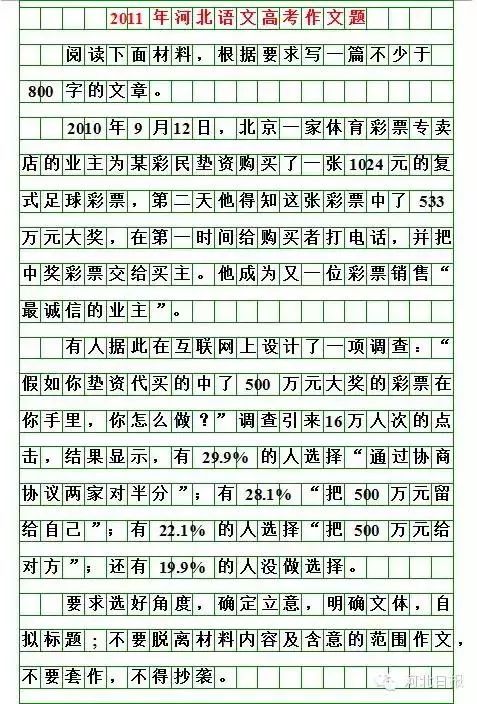 2011年河北语文高考作文题
阅读下面材料，根据要求写一篇不少于
800字的文章。
2010年9月12日，北京一家体育彩票专卖
店的业主为某彩民垫资购买了一张1024元的复
式足球彩票，第二天他得知这张彩票中了533
万元大奖，在第一时间给购买者打电话，并把
中奖彩票交给买主。他成为又一位彩票销售“
最诚信的业主”。
有人据此在互联网上设计了一项调查：“
假如你垫资代买的中了500万元大奖的彩票在
你手里，你怎么做？”调查引来16万人次的点
击，结果显示，有29.9%的人选择“通过协商
协议两家对半分”；有28.1%“把500万元留
给自己”；有22.1%的人选择“把500万元给
对方”；还有19.9%的人没做选择。
要求选好角度，确定立意，明确文体，自
拟标题；不要脱离材料内容及含意的范围作文，
不要套作，不得抄袭。
河北日报